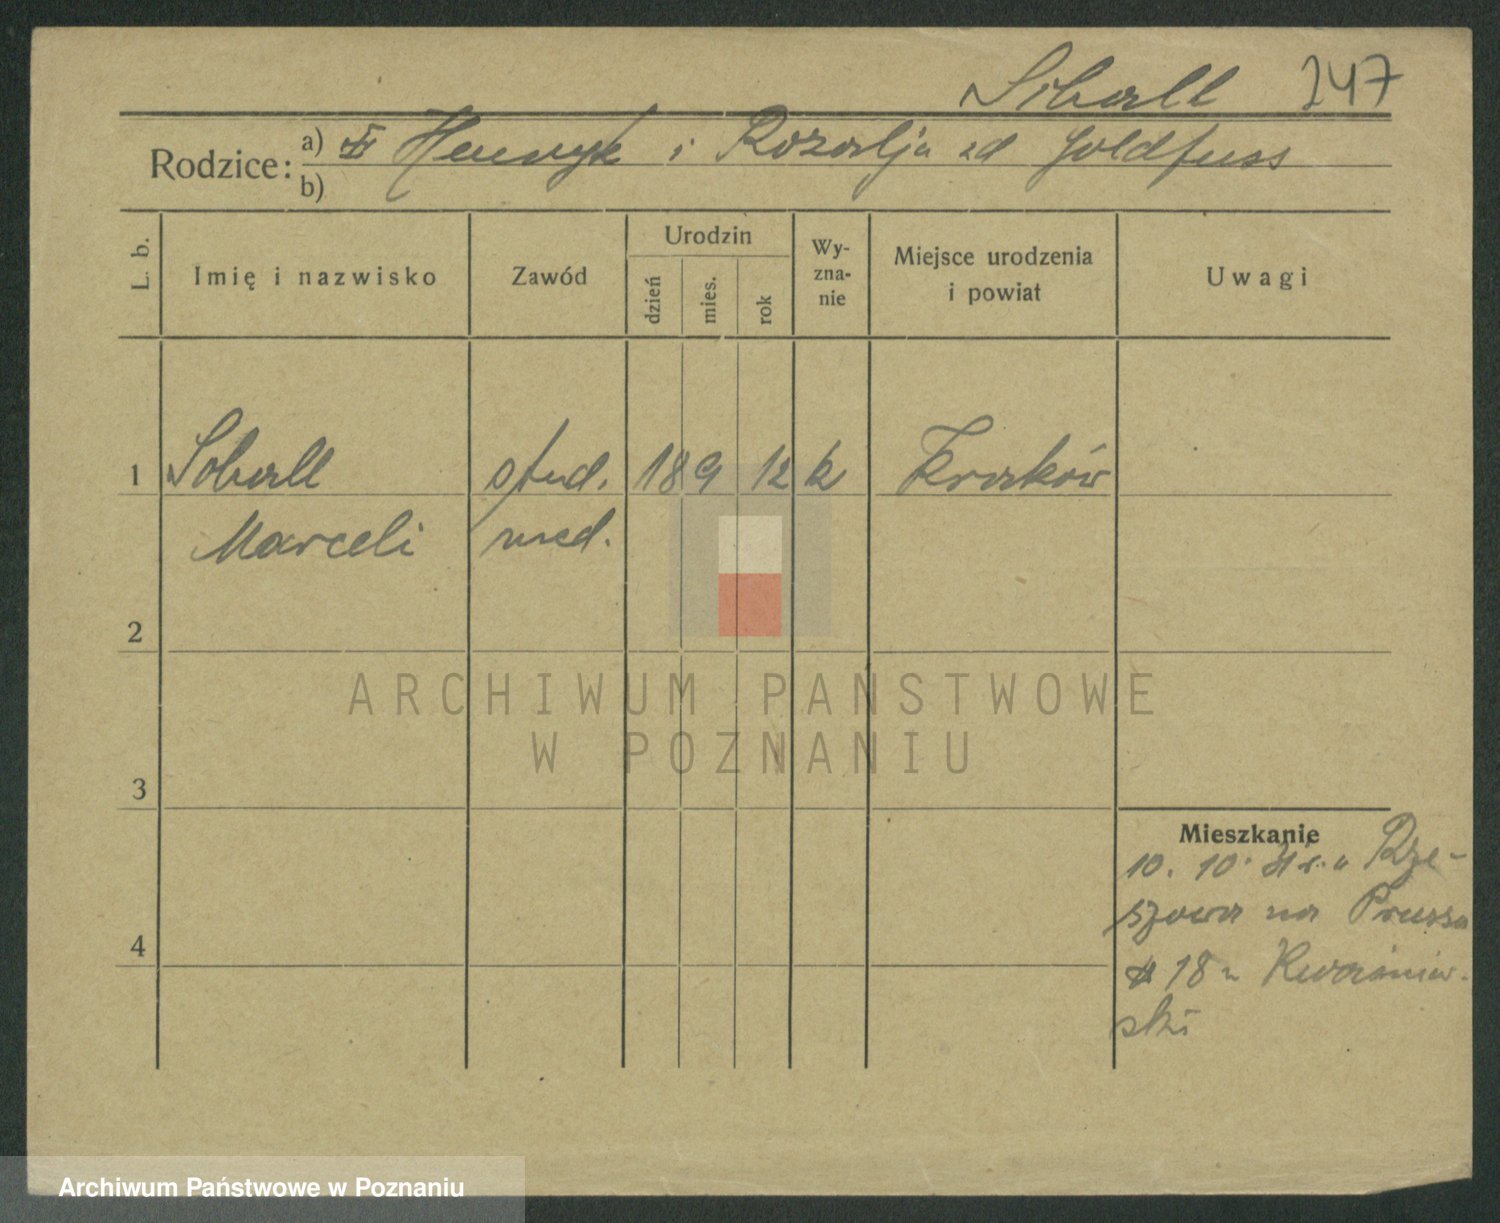 Soball 247
Rodzice: a) Henryk i Rozalja zd Goldfuss
b)
L. b. Imię i nazwisko Zawód Urodzin dzień mies. rok Wyznanie Miejsce urodzenia i powiat Uwagi
1 Soball stud. 18 9 12 k Kraków
Marceli med.
2
ARCHIWUM PAŃSTWOWE
W POZNANIU
3
Mieszkanie
10. 10. 31 r. z Rze-
szowa na Prussa
18 u Kwaśniew-
ski
4
Archiwum Państwowe w Poznaniu